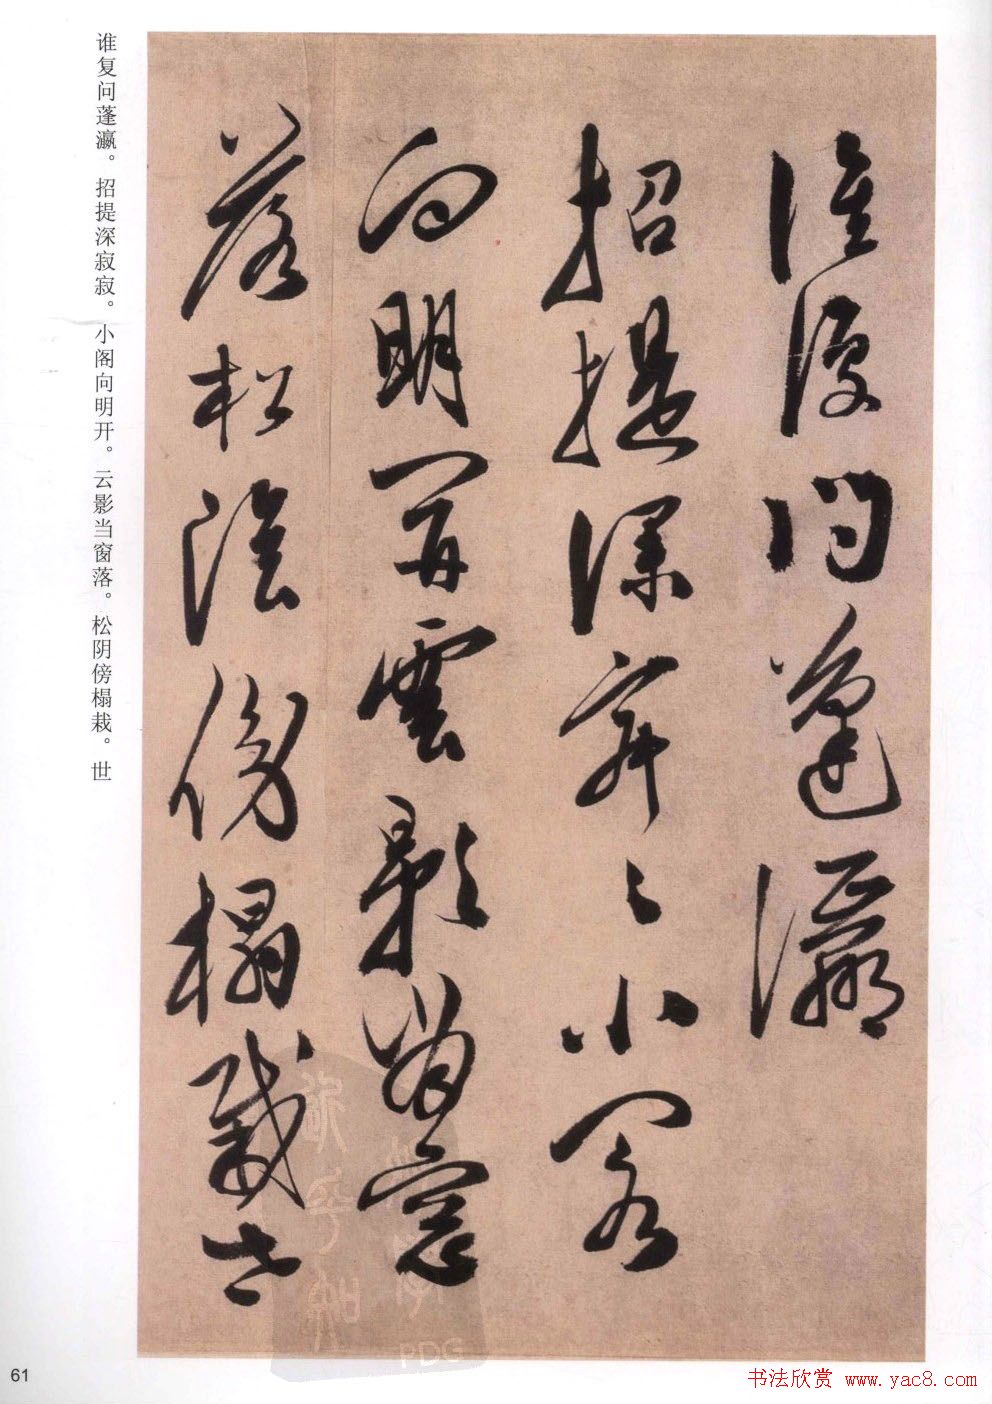 谁复问蓬瀛。招提深寂寂。小阁向明开。云影当窗落。松阴傍榻栽。世
誰復問蓬瀛
招提深寂〻小閣
向明開雲影當窓
落松陰傍榻栽世
PDG
61
书法欣赏 www.yac8.com